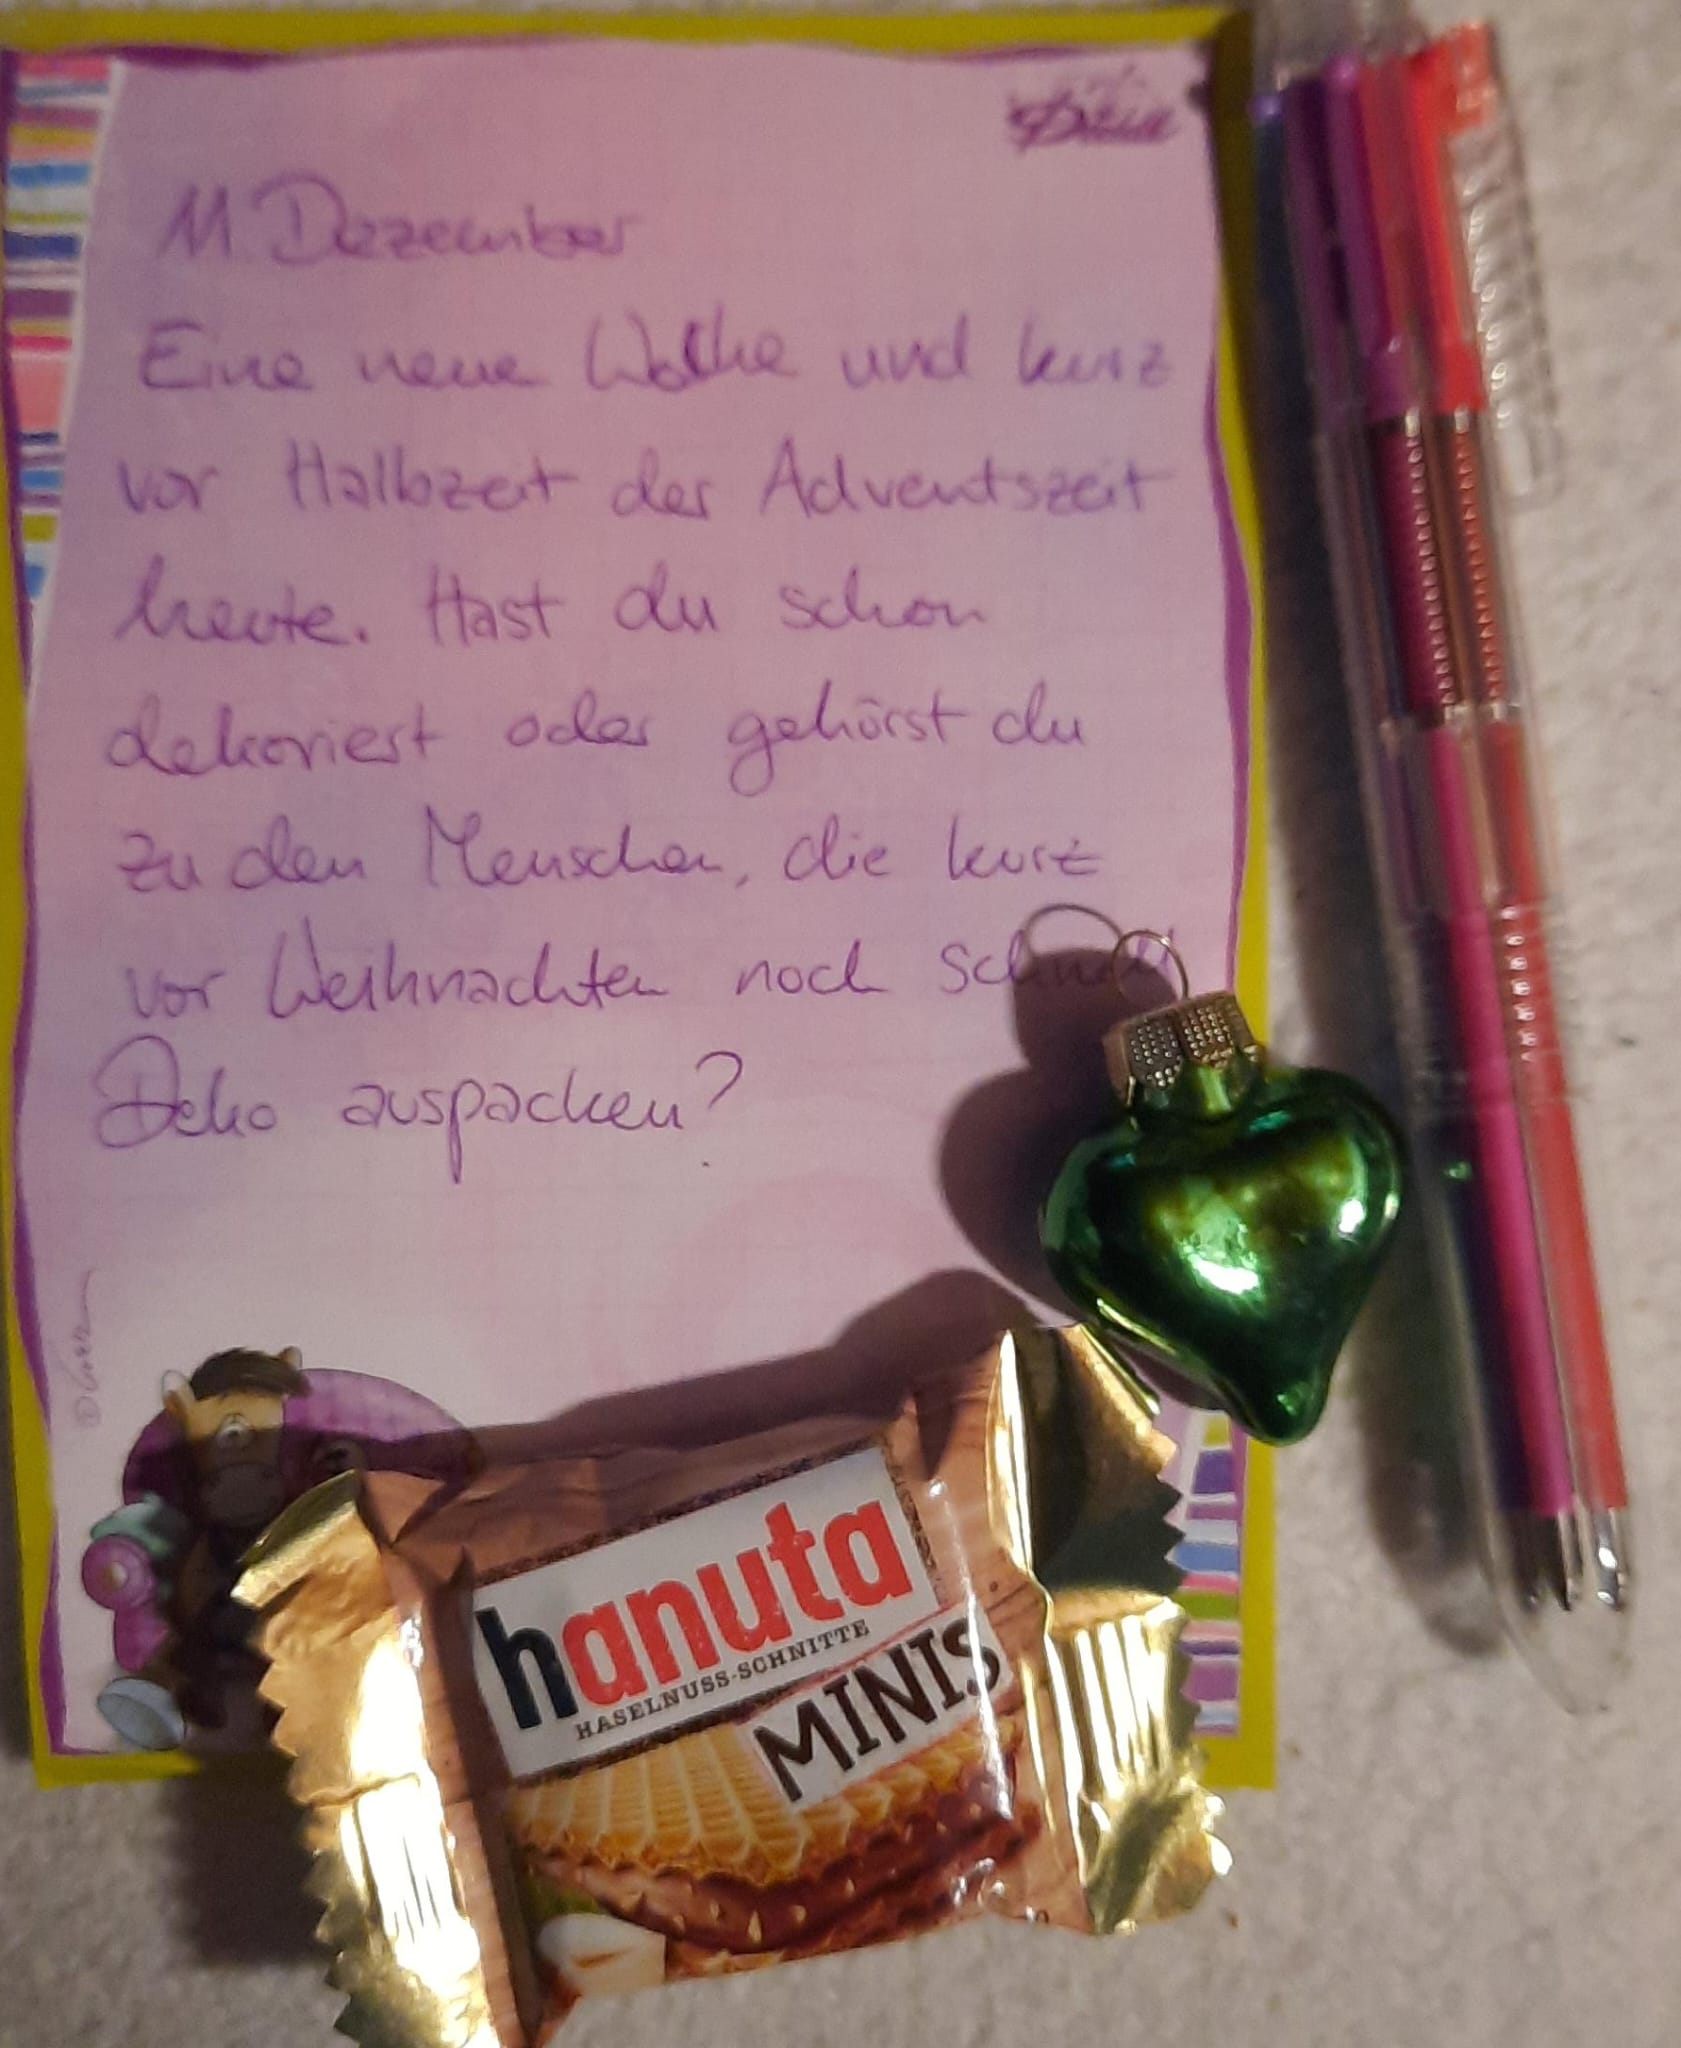 11. Dezember
Eine neue Woche und kurz
vor Halbzeit der Adventszeit
heute. Hast du schon
dekoriert oder gehörst du
zu den Menschen, die kurz
vor Weihnachten noch schnell
Deko auspacken?
hanuta
HASELNUSS-SCHNITTE
MINIS